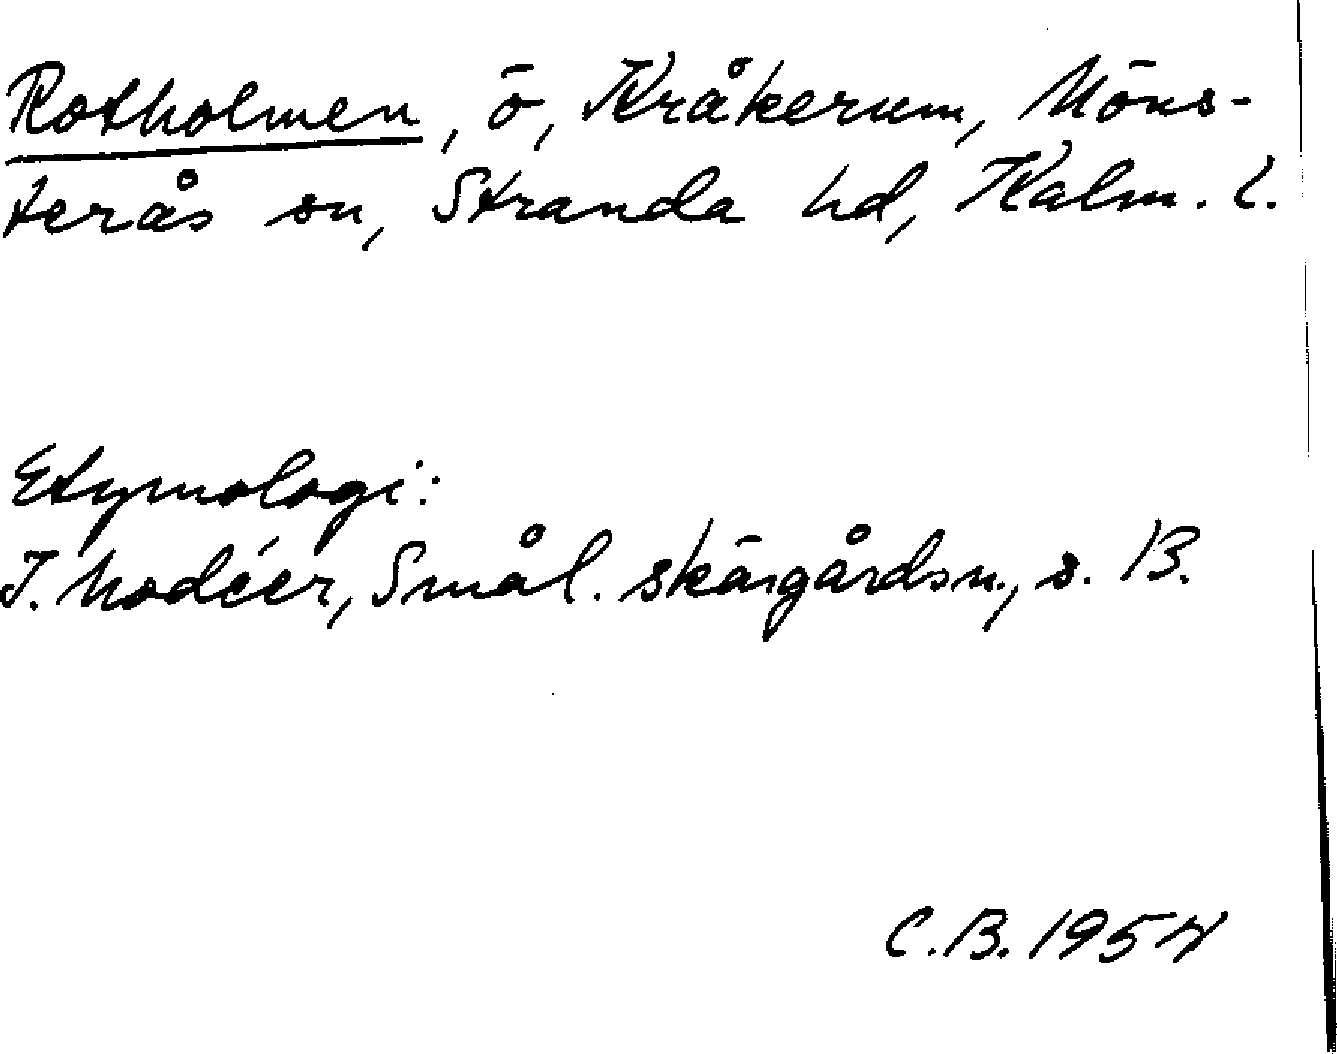 Rotholmen, ö, Kråkerum, Möns-
terås sn, Stranda hd, Kalm. l.
Etymologi:
I. Modéer, Smål. skärgårdsn., s. 13.
C.B. 1954